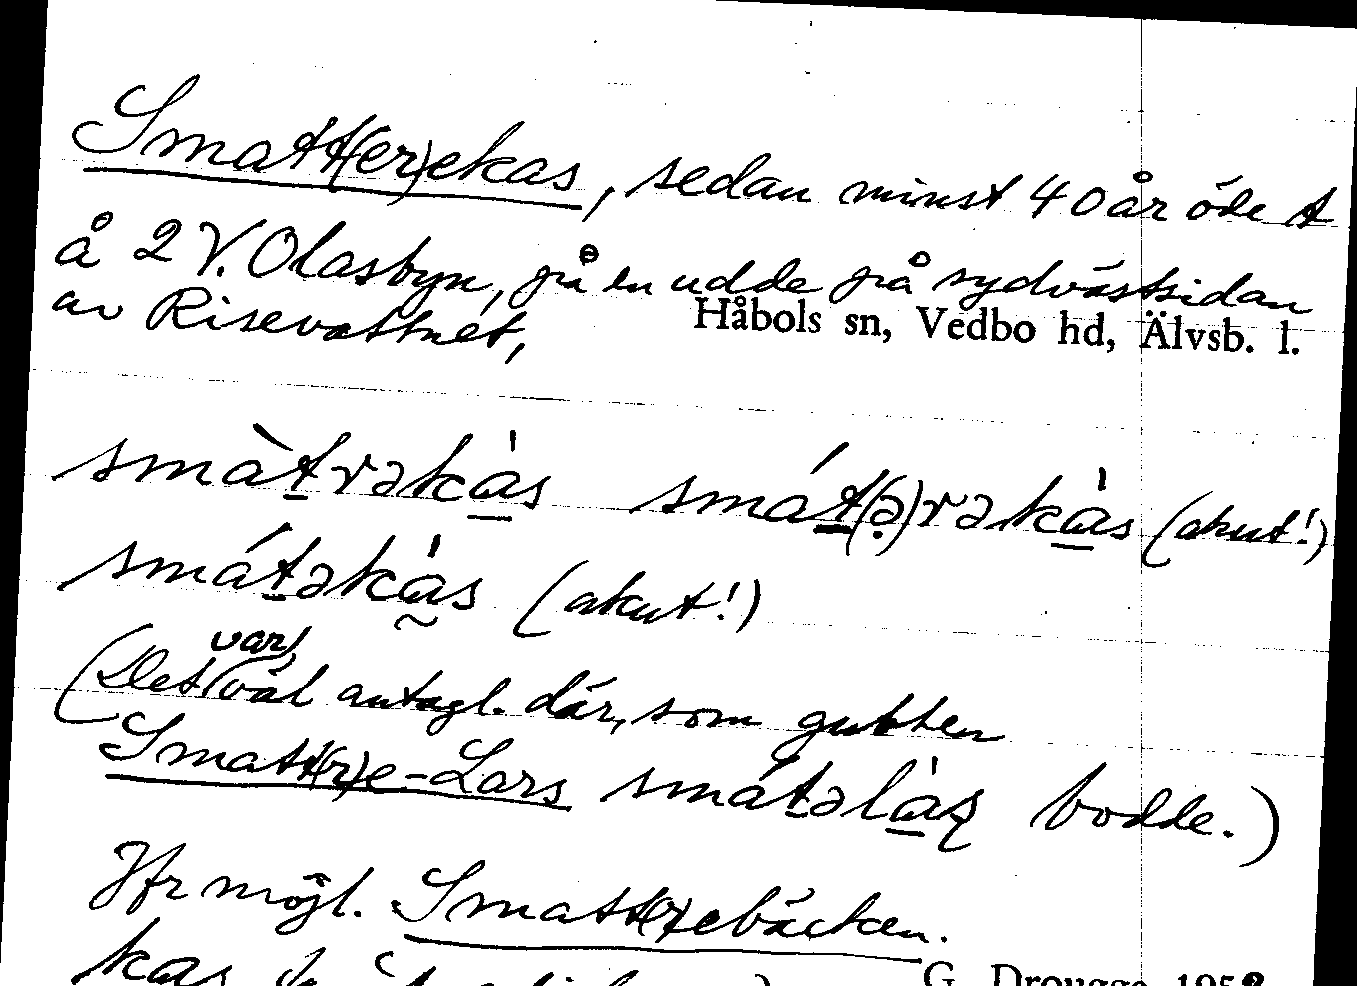 Smatt(er)ekas, sedan minst 40 år öde t
å 2 V. Olasbyn, på en udde på sydvästsidan
av Risevattnet,
Håbols sn, Vedbo hd, Älvsb. l.
smàt̲rəkà̲s smát̲(ə̣)rəkà̲s (akut!)
smát̲əkà̰s (akut!)
(Det var väl antagl. där, som gubben
Smatt(r)e-Lars smát̲əlà̲ʂ bodde.)
Jfr möjl. Smatt(er)ebäcken.
kas
G. Drougge 195